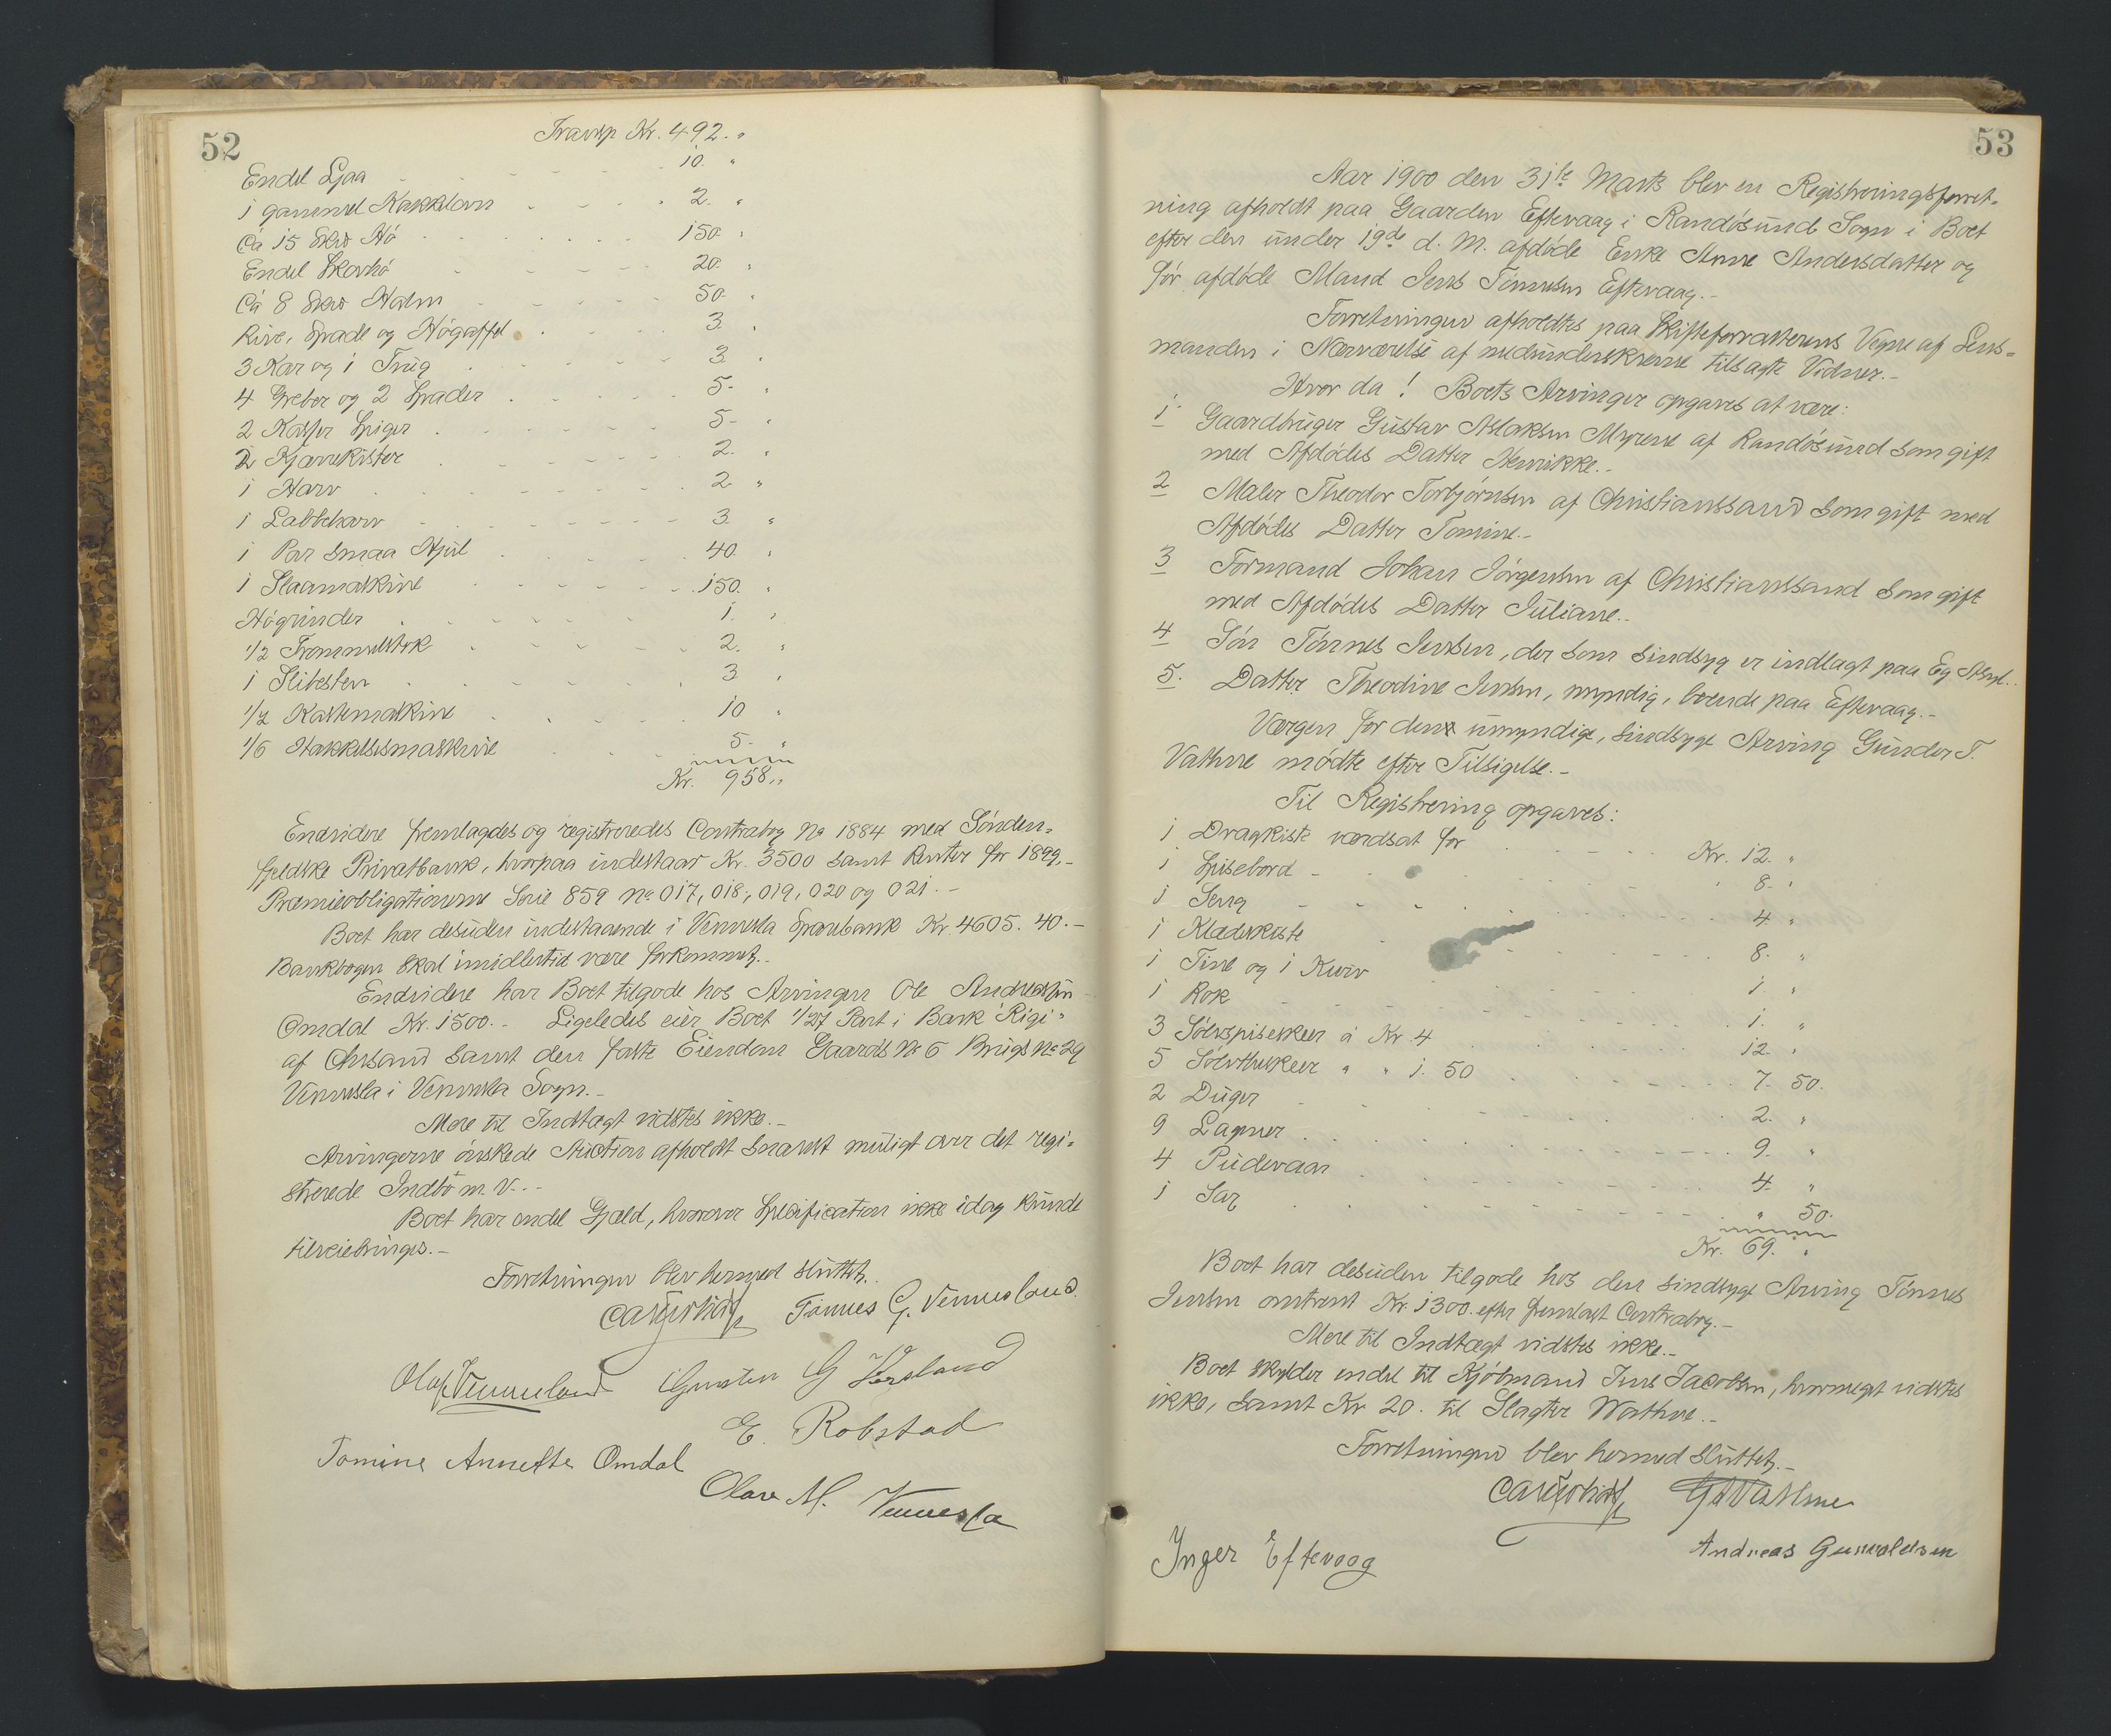 52
Transp Kr. 492. "
Endel Ljaa 10. "
1 gammel Kakkelovn 2. "
Ca 15 Skpd Hö 150 "
Endel Skovhö 20. "
Ca 8 Skpd Halm 50. "
Rive, Spade og Högaffel 3. "
3 Kar og 1 Trug 3. "
4 Greber og 2 Spader 5. "
2 Kasser Spiger 5. "
2 Kjærrekister 2. "
1 Harv 2. "
1 Labbeharv 3. "
1 Par smaa Hjul 40. "
1 Slaamaskine 150. "
Högrinder 1. "
1/2 Trommelstok 2. "
1 Slibesten 3 "
1/2 Kastemaskine 10 "
1/6 Hakkelsesmaskine 5. "
Kr. 958. "
Endvidere fremlagdes og registreredes Contrabog No 1884 med Sönden=
fjeldske Privatbank, hvorpaa indestaar Kr. 3500 samt Renter for 1899.-
Præmieobligationerne Serie 859 No 017, 018, 019, 020 og 021.-
Boet har desuden indestaaende i Vennesla Sparebank Kr. 4605. 40.-
Bankbogen skal imidlertid være forkommet.-
Endvidere har Boet tilgode hos Arvingen Ole Andreassen
Omdal Kr. 1500.- Ligeledes eier Boet 1/27 Part i Bark "Rigi"
af Chrsand samt den faste Eiendom Gaards No 6 Brugs No 29
Vennesla i Vennesla Sogn.-
Mere til Indtægt vidstes ikke.-
Arvingerne önskede Auction afholdt snarest muligt over det regi=
strerede Indbo m. v.-
Boet har endel Gjæld, hvorover Specification ikke idag kunde
tilveiebringes.-
Forretningen blev hermed sluttet.
Tömes G. Vennesland.
Olaf Vennesland Gunsten G
E. Robstad
Tomine Annette Omdal
Olav M. Vennesla
53
Aar 1900 den 31te Marts blev en Registreringsforret=
ning afholdt paa Gaarden Eftevaag i Randösund Sogn i Boet
efter den under 19de d. M. afdöde Enke Anne Andersdatter og
för afdöde Mand Jens Tönnesen Eftevaag.-
Forretningen afholdtes paa Skifteforvalterens Vegne af Lens=
manden i Nærværelse af nedunderskrevne tilsagte Vidner.-
Hvor da! Boets Arvinger opgaves at være:
1. Gaardbruger Gustav Aslaksen Myrene af Randösund som gift
med Afdödes Datter Henrikke.-
2 Maler Theodor Torbjörnsen af Christianssand som gift med
Afdödes Datter Tomine.-
3 Formand Johan Jörgensen af Christianssand som gift
med Afdödes Datter Juliane.-
4 Sön Tönnes Jensen, der som sindsyg er indlagt paa Eg Asyl.-
5. Datter Theodine Jensen, myndig, boende paa Eftevaag.-
Værgen for den umyndige, sindsyge Arving Gunder T.
Vathne mödte efter Tilsigelse.-
Til Registrering opgaves:
1 Dragkiste værdsat for Kr. 12. "
1 Spisebord 8. "
1 Seng 4. "
1 Klædeskiste 8. "
1 Tine og 1 Kurv 1 "
1 Rok 1. "
3 Sölvspiseskeer á Kr. 4 12. "
5 Sölvtheskeer " " 1. 50 7. 50.
2 Duger 2. "
9 Lagner 9. "
4 Pudevaar 4. "
1 Sax " 50.
Kr. 69. "
Boet har desuden tilgode hos den sindsyge Arving Tönnes
Jensen omtrent Kr. 1300. efter fremlagt Contrabog.-
Mere til Indtægt vidstes ikke.-
Boet skylder endel til Kjöbmand Jens Jacobsen, hvormeget vidstes
ikke, samt Kr 20. til Slagter Wathne.-
Forretningen blev hermed sluttet.-
G T Vathne
Inger Eftevaag Andreas Gunvaldsen